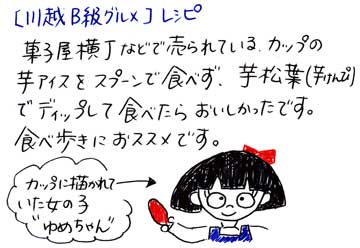 [川越B級グルメ] レシピ
菓子屋横丁などで売られている、カップの
芋アイスをスプーンで食べず、芋松葉(芋けんぴ)
でディップして食べたらおいしかったです。
食べ歩きにおススメです。
カップに描かれて
いた女の子
"ゆめちゃん"